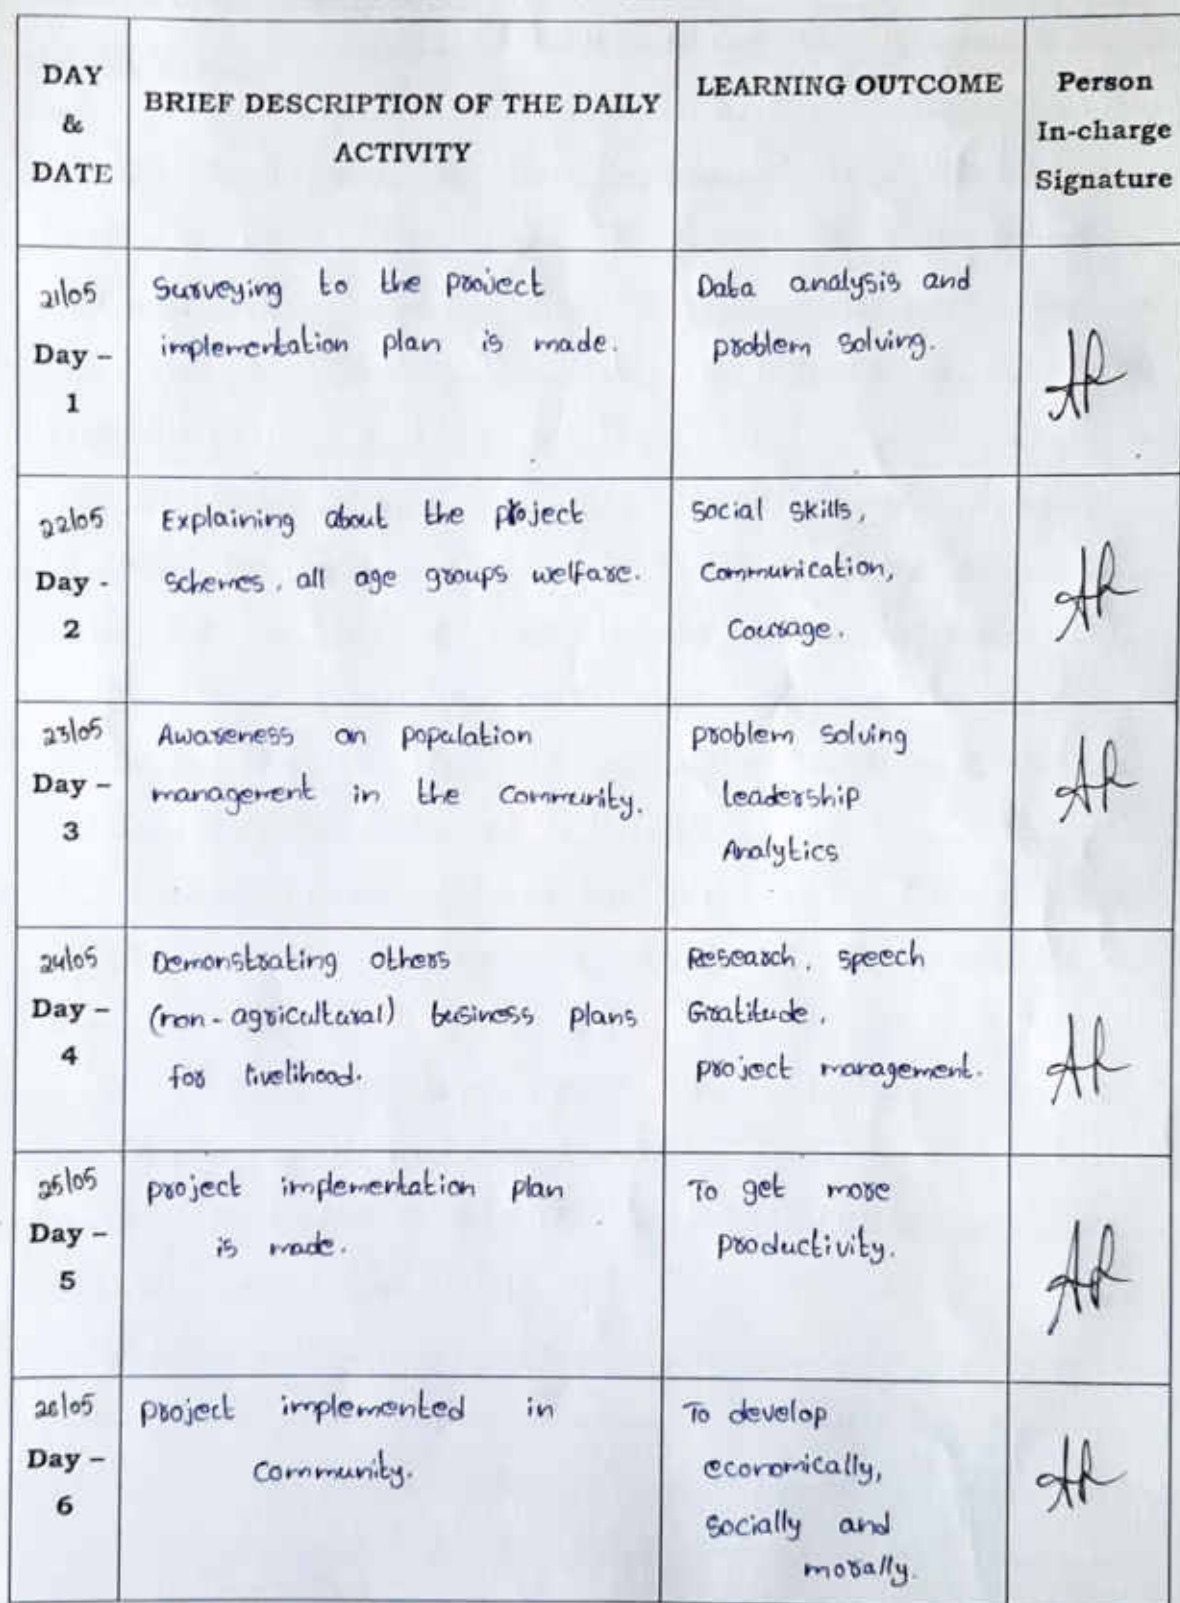 DAY
&
DATE
BRIEF DESCRIPTION OF THE DAILY
ACTIVITY
LEARNING OUTCOME
Person
In-charge
Signature
21/05
Day -
1
Surveying to the project
implementation plan is made.
Data analysis and
problem solving.
22/05
Day -
2
Explaining about the project
schemes, all age groups welfare.
Social skills,
Communication,
Courage.
23/05
Day -
3
Awareness on population
management in the community.
problem solving
leadership
Analytics
24/05
Day -
4
Demonstrating others
(non-agricultural) business plans
for livelihood.
Research, speech
Gratitude,
project management.
25/05
Day -
5
project implementation plan
is made.
To get more
productivity.
26/05
Day -
6
project implemented in
community.
To develop
economically,
socially and
morally.